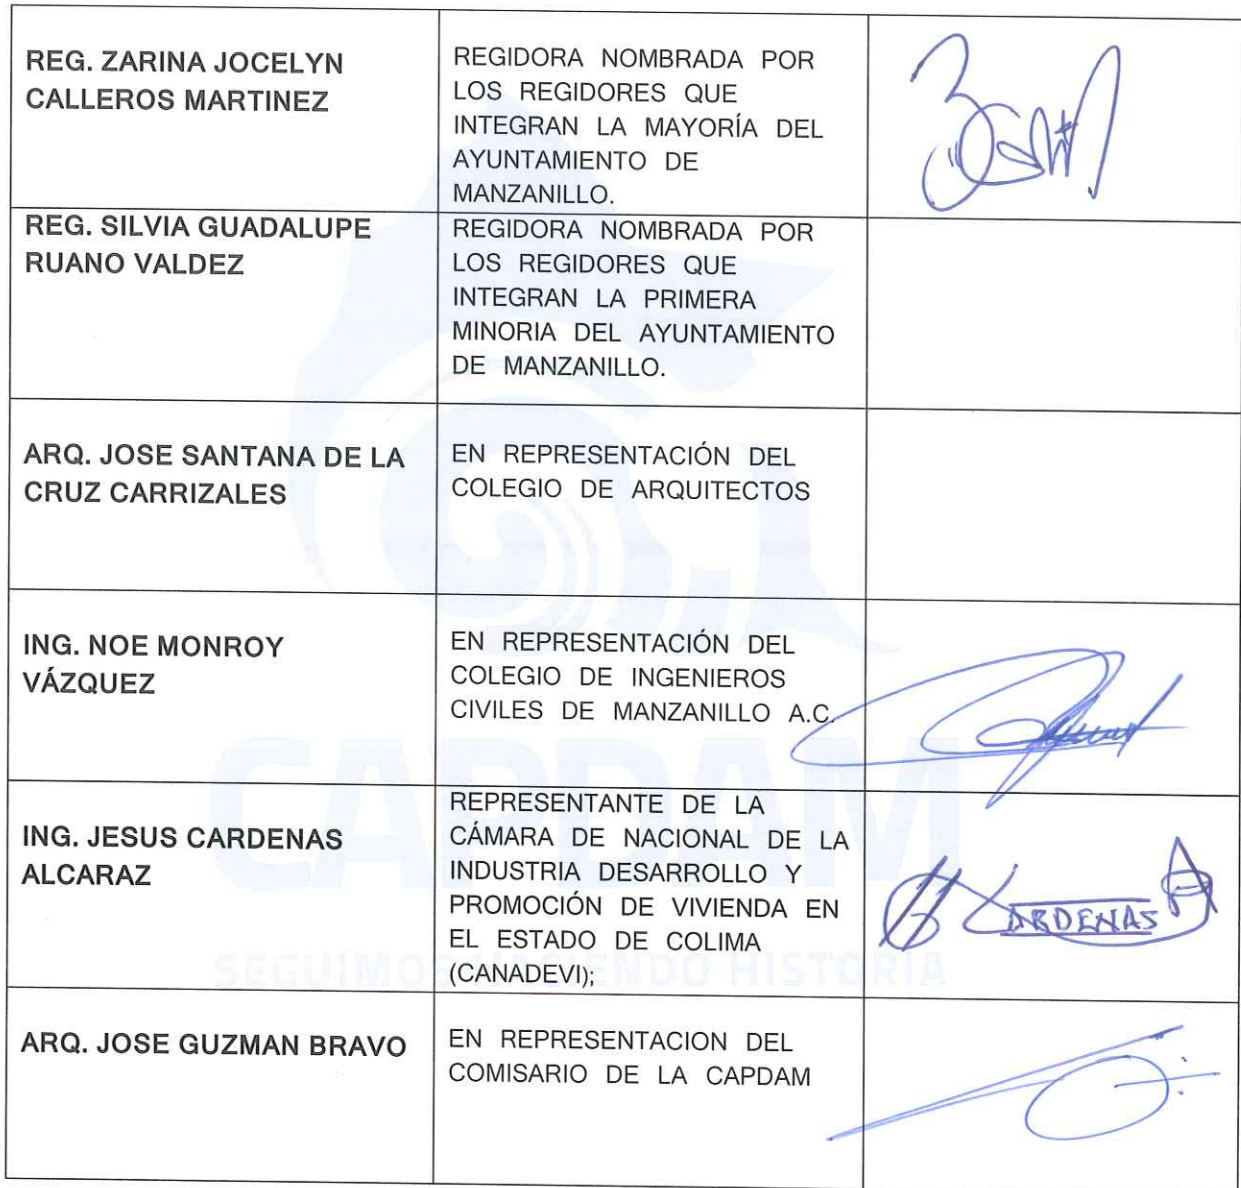 REG. ZARINA JOCELYN
CALLEROS MARTINEZ
REGIDORA NOMBRADA POR
LOS REGIDORES QUE
INTEGRAN LA MAYORÍA DEL
AYUNTAMIENTO DE
MANZANILLO.
REG. SILVIA GUADALUPE
RUANO VALDEZ
REGIDORA NOMBRADA POR
LOS REGIDORES QUE
INTEGRAN LA PRIMERA
MINORIA DEL AYUNTAMIENTO
DE MANZANILLO.
ARQ. JOSE SANTANA DE LA
CRUZ CARRIZALES
EN REPRESENTACIÓN DEL
COLEGIO DE ARQUITECTOS
ING. NOE MONROY
VÁZQUEZ
EN REPRESENTACIÓN DEL
COLEGIO DE INGENIEROS
CIVILES DE MANZANILLO A.C.
ING. JESUS CARDENAS
ALCARAZ
REPRESENTANTE DE LA
CÁMARA DE NACIONAL DE LA
INDUSTRIA DESARROLLO Y
PROMOCIÓN DE VIVIENDA EN
EL ESTADO DE COLIMA
(CANADEVI);
CARDENAS
ARQ. JOSE GUZMAN BRAVO
EN REPRESENTACION DEL
COMISARIO DE LA CAPDAM
CAPDAM
SEGUIMOS HACIENDO HISTORIA